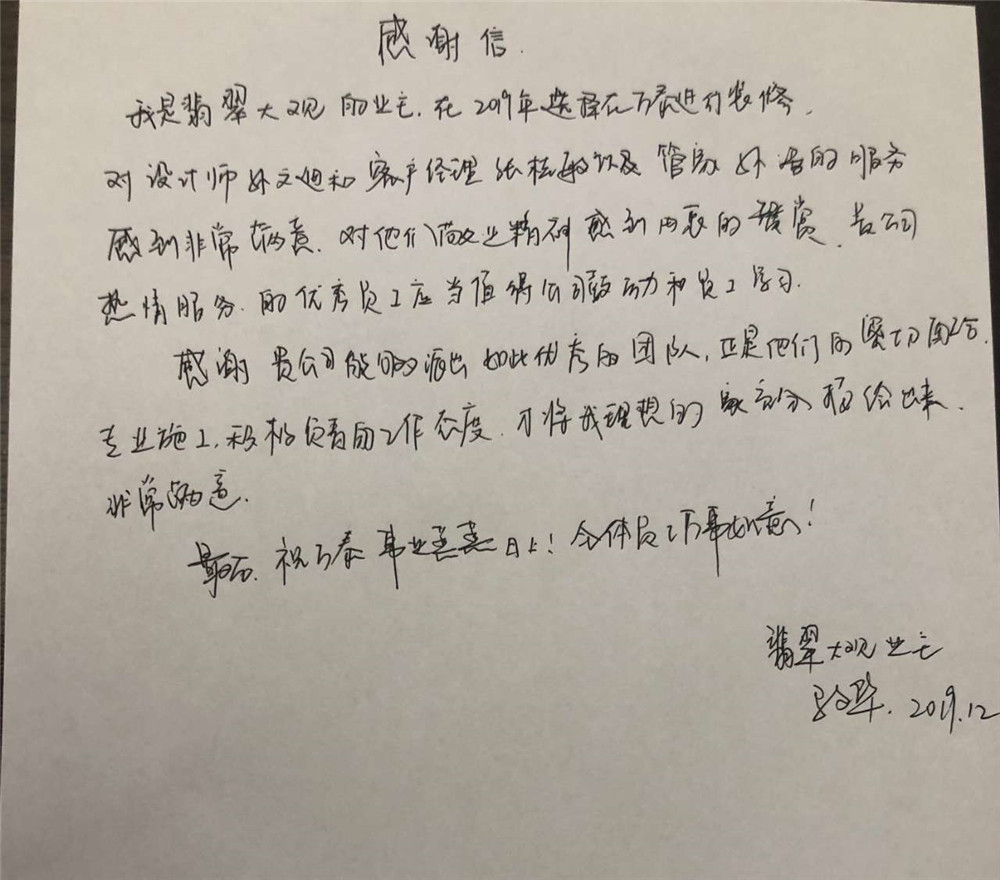 感谢信.
我是翡翠大观的业主.在2019年选择在万泰进行装修.
对设计师 文迪和客户经理张桂 以及管家 的服务
感到非常满意.对他们敬业精神感到由衷的赞赏.贵公司
热情服务.的优秀员工应当值得公司鼓动和员工学习.
感谢贵公司能够派出如此优秀的团队,正是他们的紧切配合.
专业施工,积极负责的工作态度.才将我理想的家 描绘出来.
非常满意.
最后.祝万泰事业蒸蒸日上!全体员工万事如意!
翡翠大观业主
2019.12